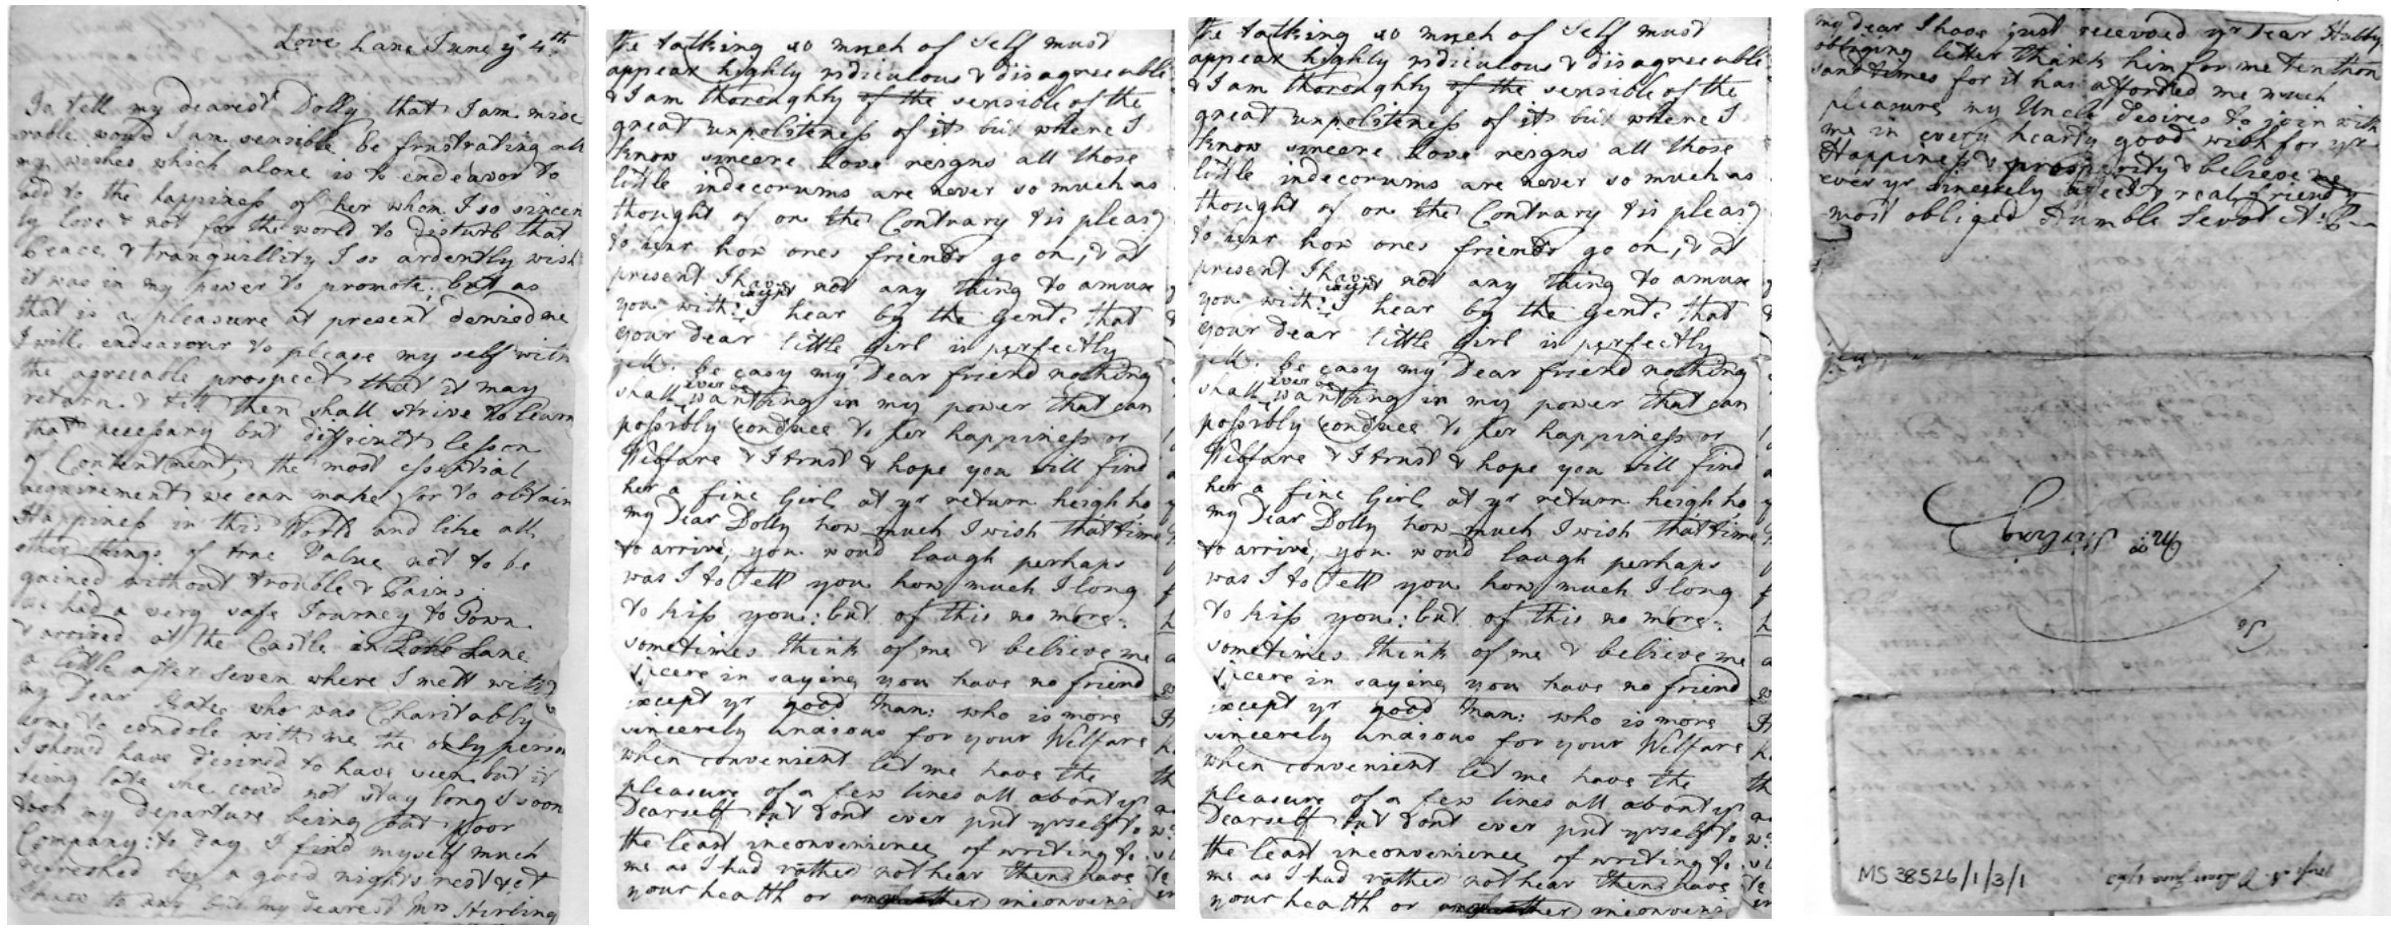 Love Lane June ye 4th
To tell my dearest Dolly that I am mise
rable would I am sensible be frustrating all
my wishes which alone is to endeavor to
add to the happiness of her whom I so sincere
ly love & not for the world to disturb that
Peace & tranquillity I so ardently wish
it was in my power to promote, but as
that is a pleasure at present denied me
I will endeavour to please my self with
the agreeable prospect that it may
return. & till then shall strive to learn
that necessary but difficult lesson
of Contentment, the most essential
acquirement we can make for to obtain
Happiness in this World and like all
other things of true Value not to be
gained without trouble & Pains.
we had a very safe Journey to Town
& arrived at the Castle in Lane
a little after seven where I mett with
my Dear who was Charitably
come to condole with me the only person
I should have desired to have seen but it
being late she coud not stay long I soon
took my departure being but poor
Company: to day I find myself much
refreshed by a good nights rest yet
my dearest Mrs Stirling
the talking so much of self must
appear highly ridiculous & disagreeable
& I am thoroughly of the sensible of the
great unpoliteness of it but where I
know sincere Love reigns all those
little indecorums are never so much as
thought of on the Contrary tis pleas
to hear how ones friends go on, & at
present I have not any thing to amuse
you with: except I hear by the Gent: that
your Dear little Girl is perfectly
well. be easy my Dear friend nothing
shall ever be wanthing in my power that can
possibly conduce to her happiness or
Wellfare & I trust & hope you will find
her a fine Girl at yr return heigh ho
my Dear Dolly how much I wish that time
to arrive, you woud laugh perhaps
was I to tell you how much I long
to kiss you: but of this no more:
sometimes think of me & believe me
sincere in saying you have no friend
except yr good Man: who is more
sincerely anxious for your Welfare
when convenient let me have the
pleasure of a few lines all about yr
Dearself but dont ever put yrself to
the least inconvenience of writing to
me as I had rather not hear then have
your health or inconveni
the talking so much of self must
appear highly ridiculous & disagreeable
& I am thoroughly of the sensible of the
great unpoliteness of it but where I
know sincere Love reigns all those
little indecorums are never so much as
thought of on the Contrary tis pleas
to hear how ones friends go on, & at
present I have not any thing to amuse
you with: except I hear by the Gent: that
your Dear little Girl is perfectly
well. be easy my Dear friend nothing
shall ever be wanthing in my power that can
possibly conduce to her happiness or
Wellfare & I trust & hope you will find
her a fine Girl at yr return heigh ho
my Dear Dolly how much I wish that time
to arrive, you woud laugh perhaps
was I to tell you how much I long
to kiss you: but of this no more:
sometimes think of me & believe me
sincere in saying you have no friend
except yr good Man: who is more
sincerely anxious for your Welfare
when convenient let me have the
pleasure of a few lines all about yr
Dearself but dont ever put yrself to
the least inconvenience of writing to
me as I had rather not hear then have
your health or inconveni
my Dear I have just received yr Dear Hubby
obliging letter thank him for me ten thou
sand times for it has afforded me much
pleasure my Uncle desires to join with
me in every hearty good wish for yr
Happiness & prosperity & believe me
ever yr sincerely affect: real friend &
most obliged Humble Servt A: P
To
Mrs Stirling
MS 38526/1/3/1